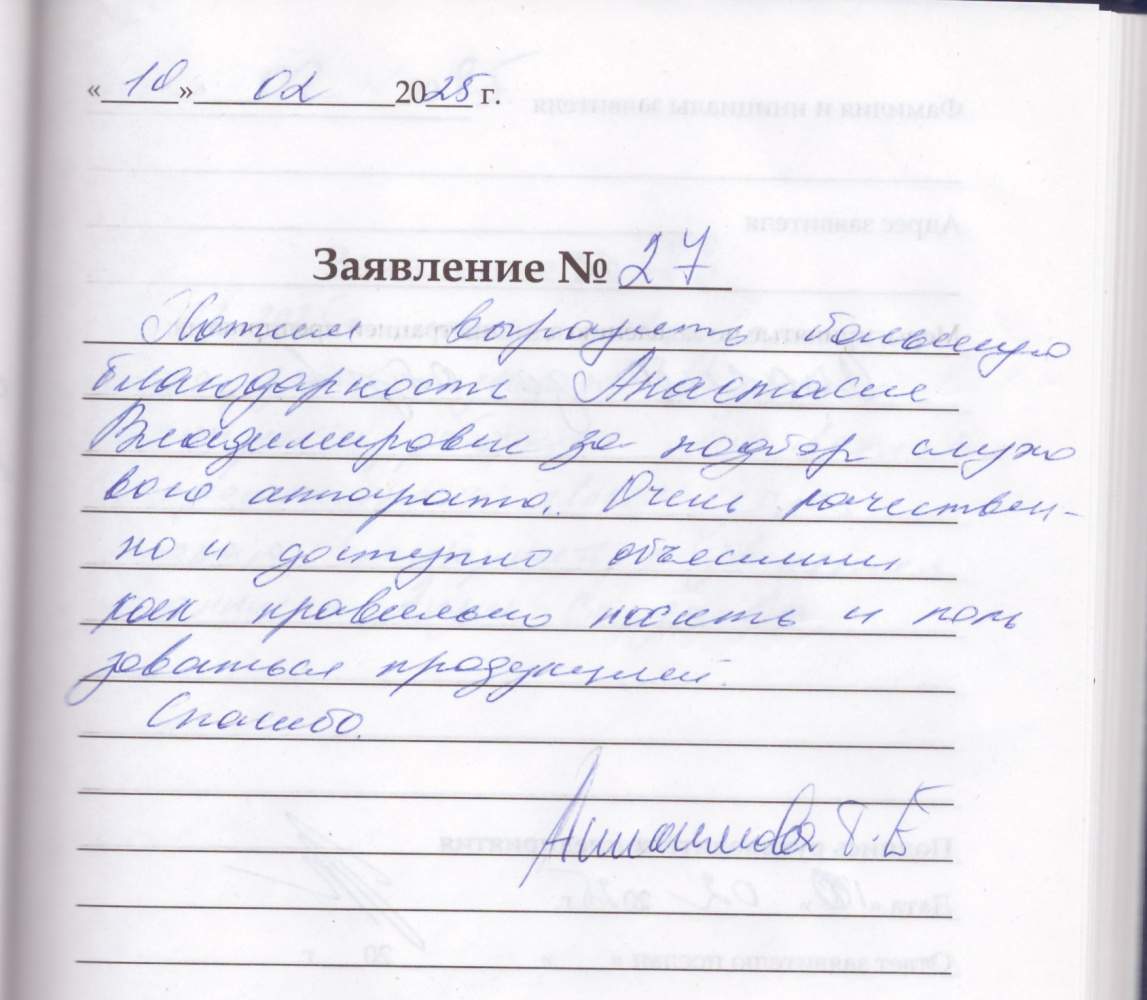 «10» 02 2025 г.
Заявление № 27
Хотим выразить большую
благодарность Анастасие
Владимировне за подбор слухо
вого аппарата. Очень качествен-
но и доступно объяснили
как правильно носить и поль
зоваться продукцией.
Спасибо.
Т.Е